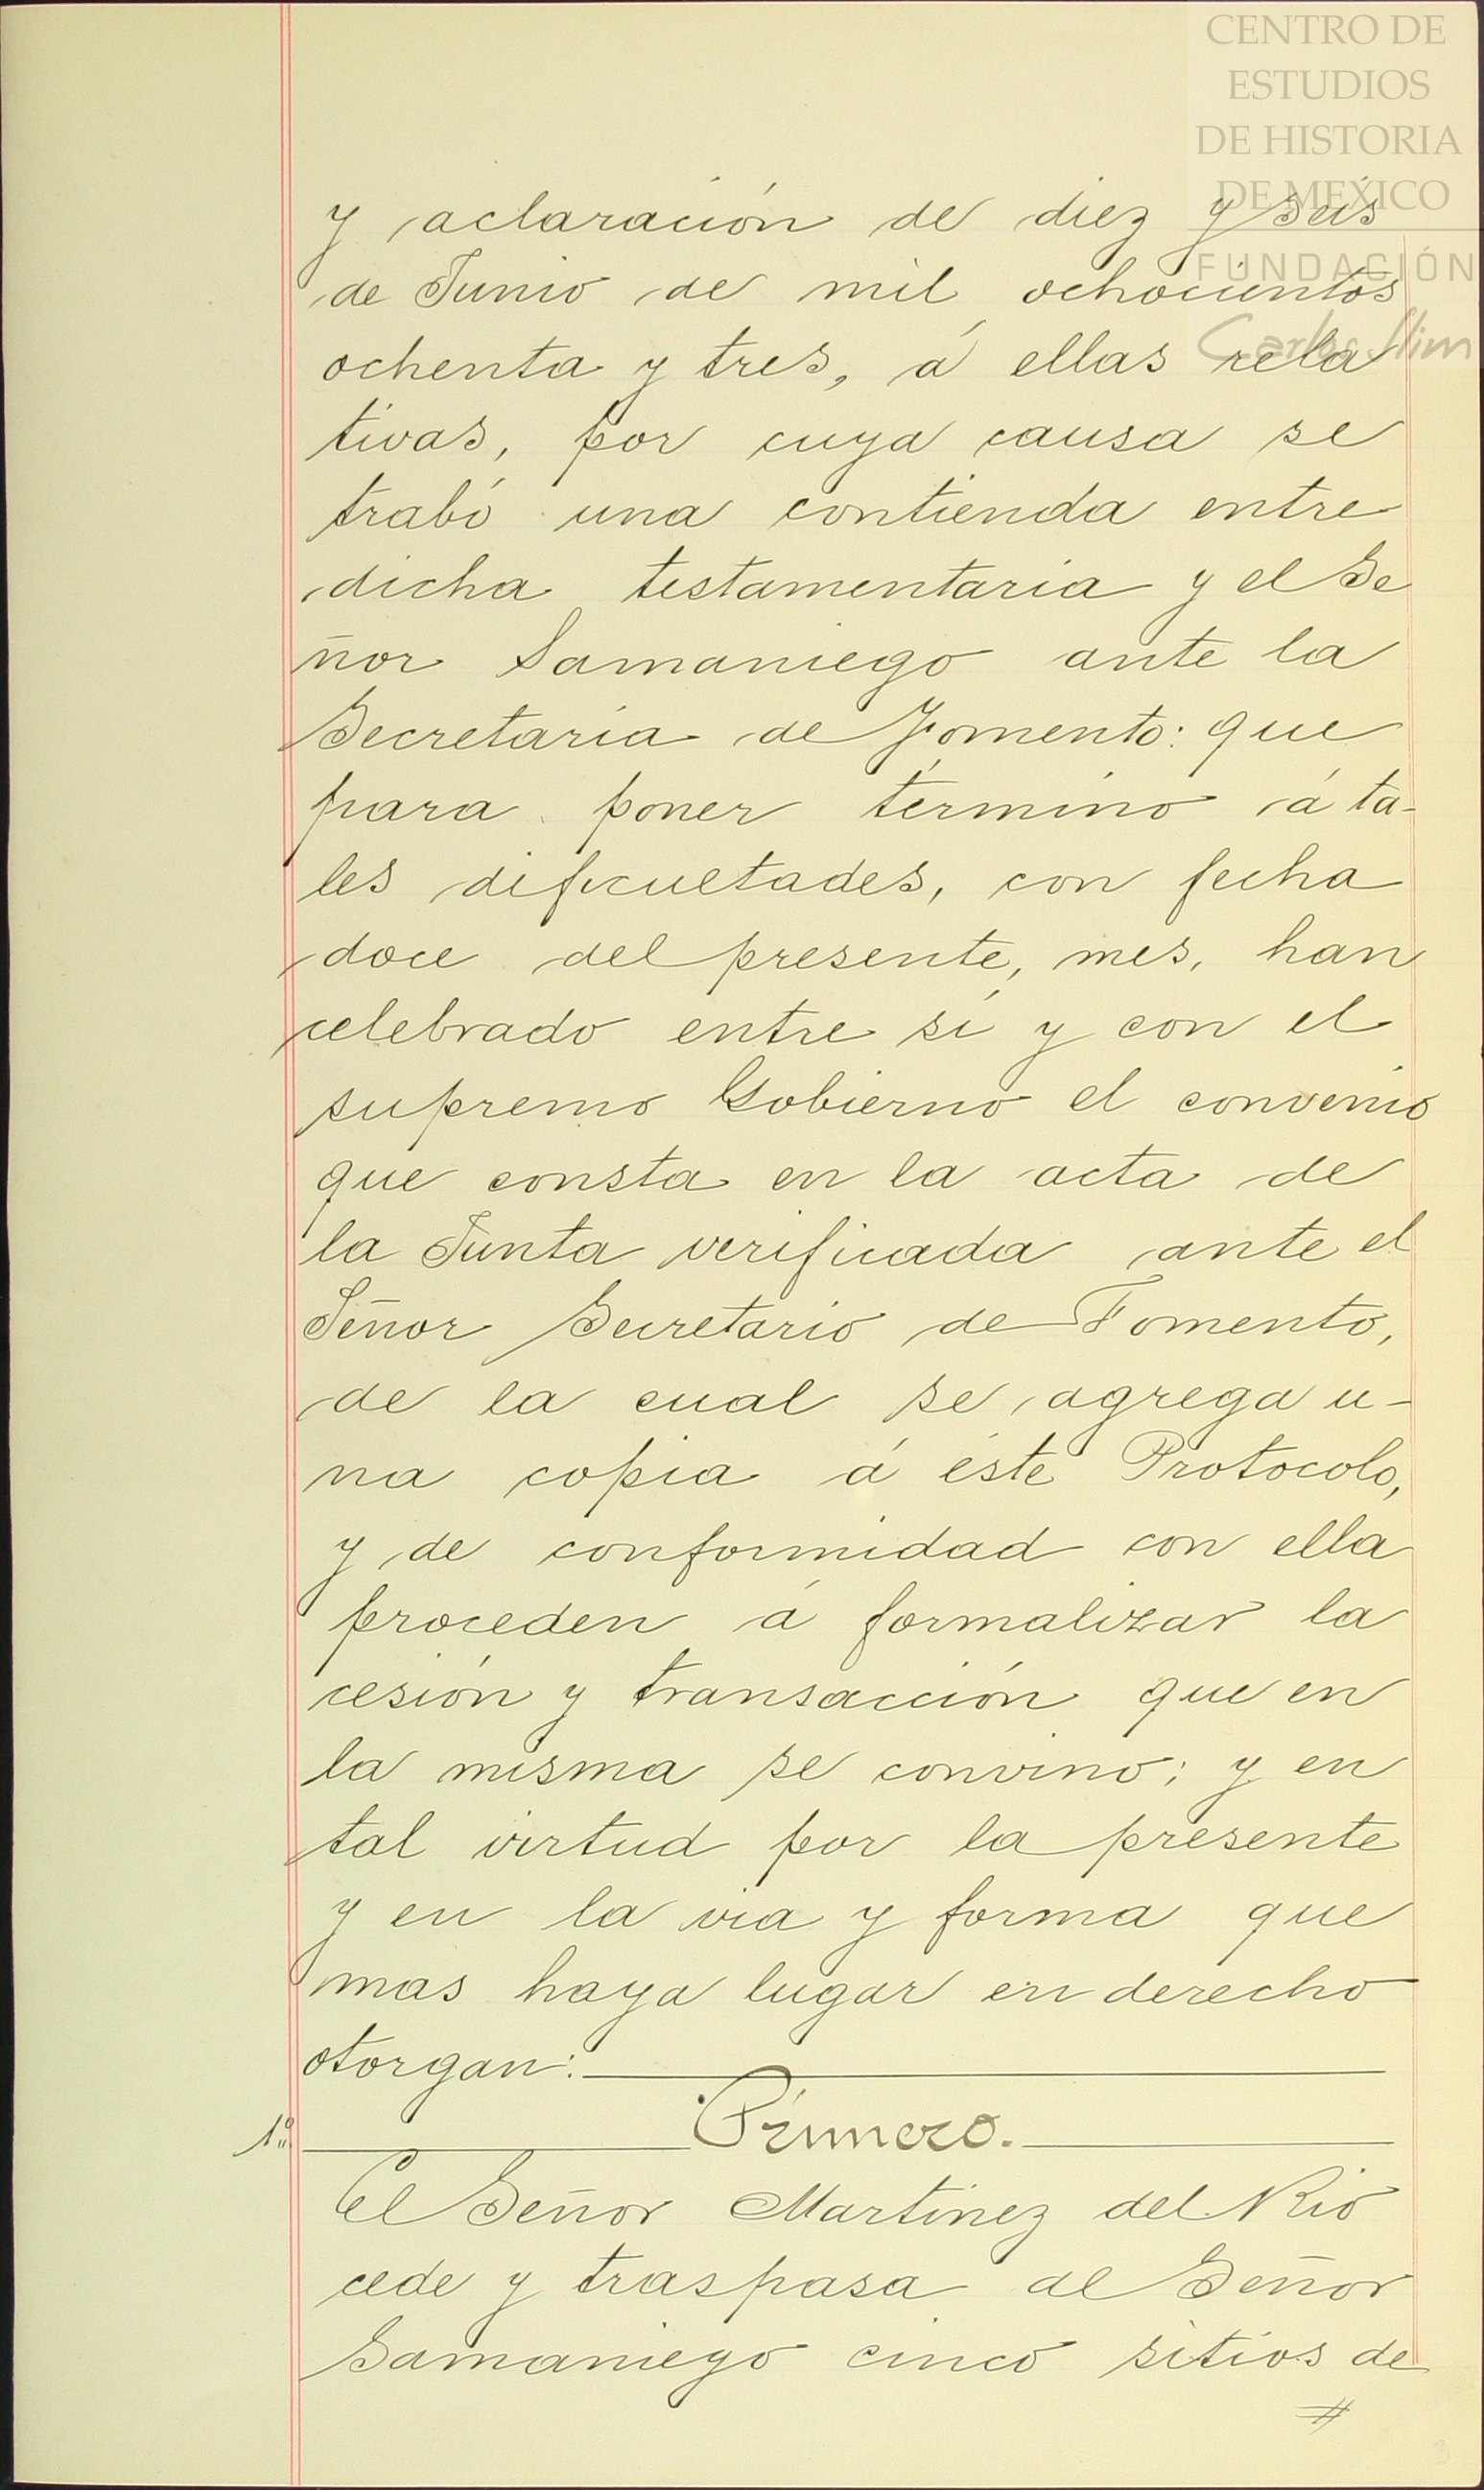 CENTRO DE
ESTUDIOS
DE HISTORIA
DE MEXICO
FUNDACIÓN
Carlos Slim
y aclaración de diez y seis
de Junio de mil ochocientos
ochenta y tres, á ellas rela
tivas, por cuya causa se
trabó una contienda entre
dicha testamentaria y el Se
ñor Samaniego ante la
Secretaría de Fomento: que
para poner término á ta-
les dificultades, con fecha
doce del presente, mes, han
celebrado entre sí y con el
supremo Gobierno el convenio
que consta en la acta de
la Junta verificada ante el
Señor Secretario de Fomento,
de la cual se agrega u-
na copia á éste Protocolo,
y de conformidad con ella
proceden á formalizar la
cesión y transacción que en
la misma se convino; y en
tal virtud por la presente
y en la via y forma que
mas haya lugar en derecho
otorgan:
1º Primero.
El Señor Martínez del Rio
cede y traspasa al Señor
Samaniego cinco sitios de
#